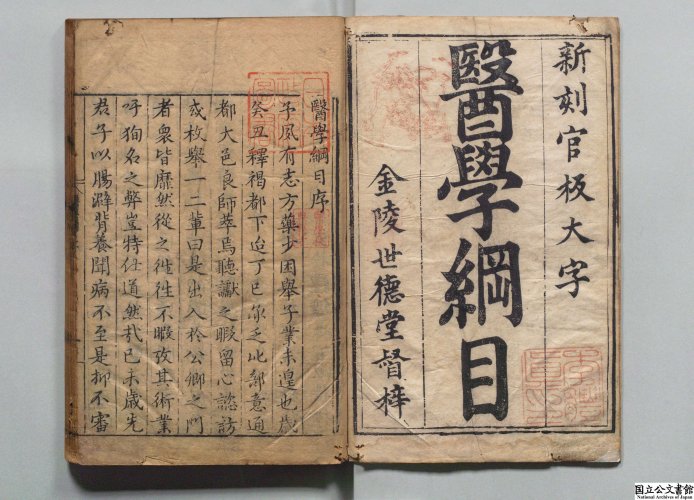 新刻官板大字
醫學綱目
金陵世德堂督梓
醫學綱目序
予夙有志方藥少困舉子業未遑也歲
癸丑釋褐都下迨丁巳承乏比部意通
都大邑良師萃焉聽讞之暇留心諮訪
或枚舉一二輩曰是出入於公卿之門
者衆皆靡然從之徃徃不暇攷其術業
吁狥名之弊豈特仕道然哉己未歲先
君子以腸澼背養聞病不至是抑不審
国立公文書館
National Archives of Japan